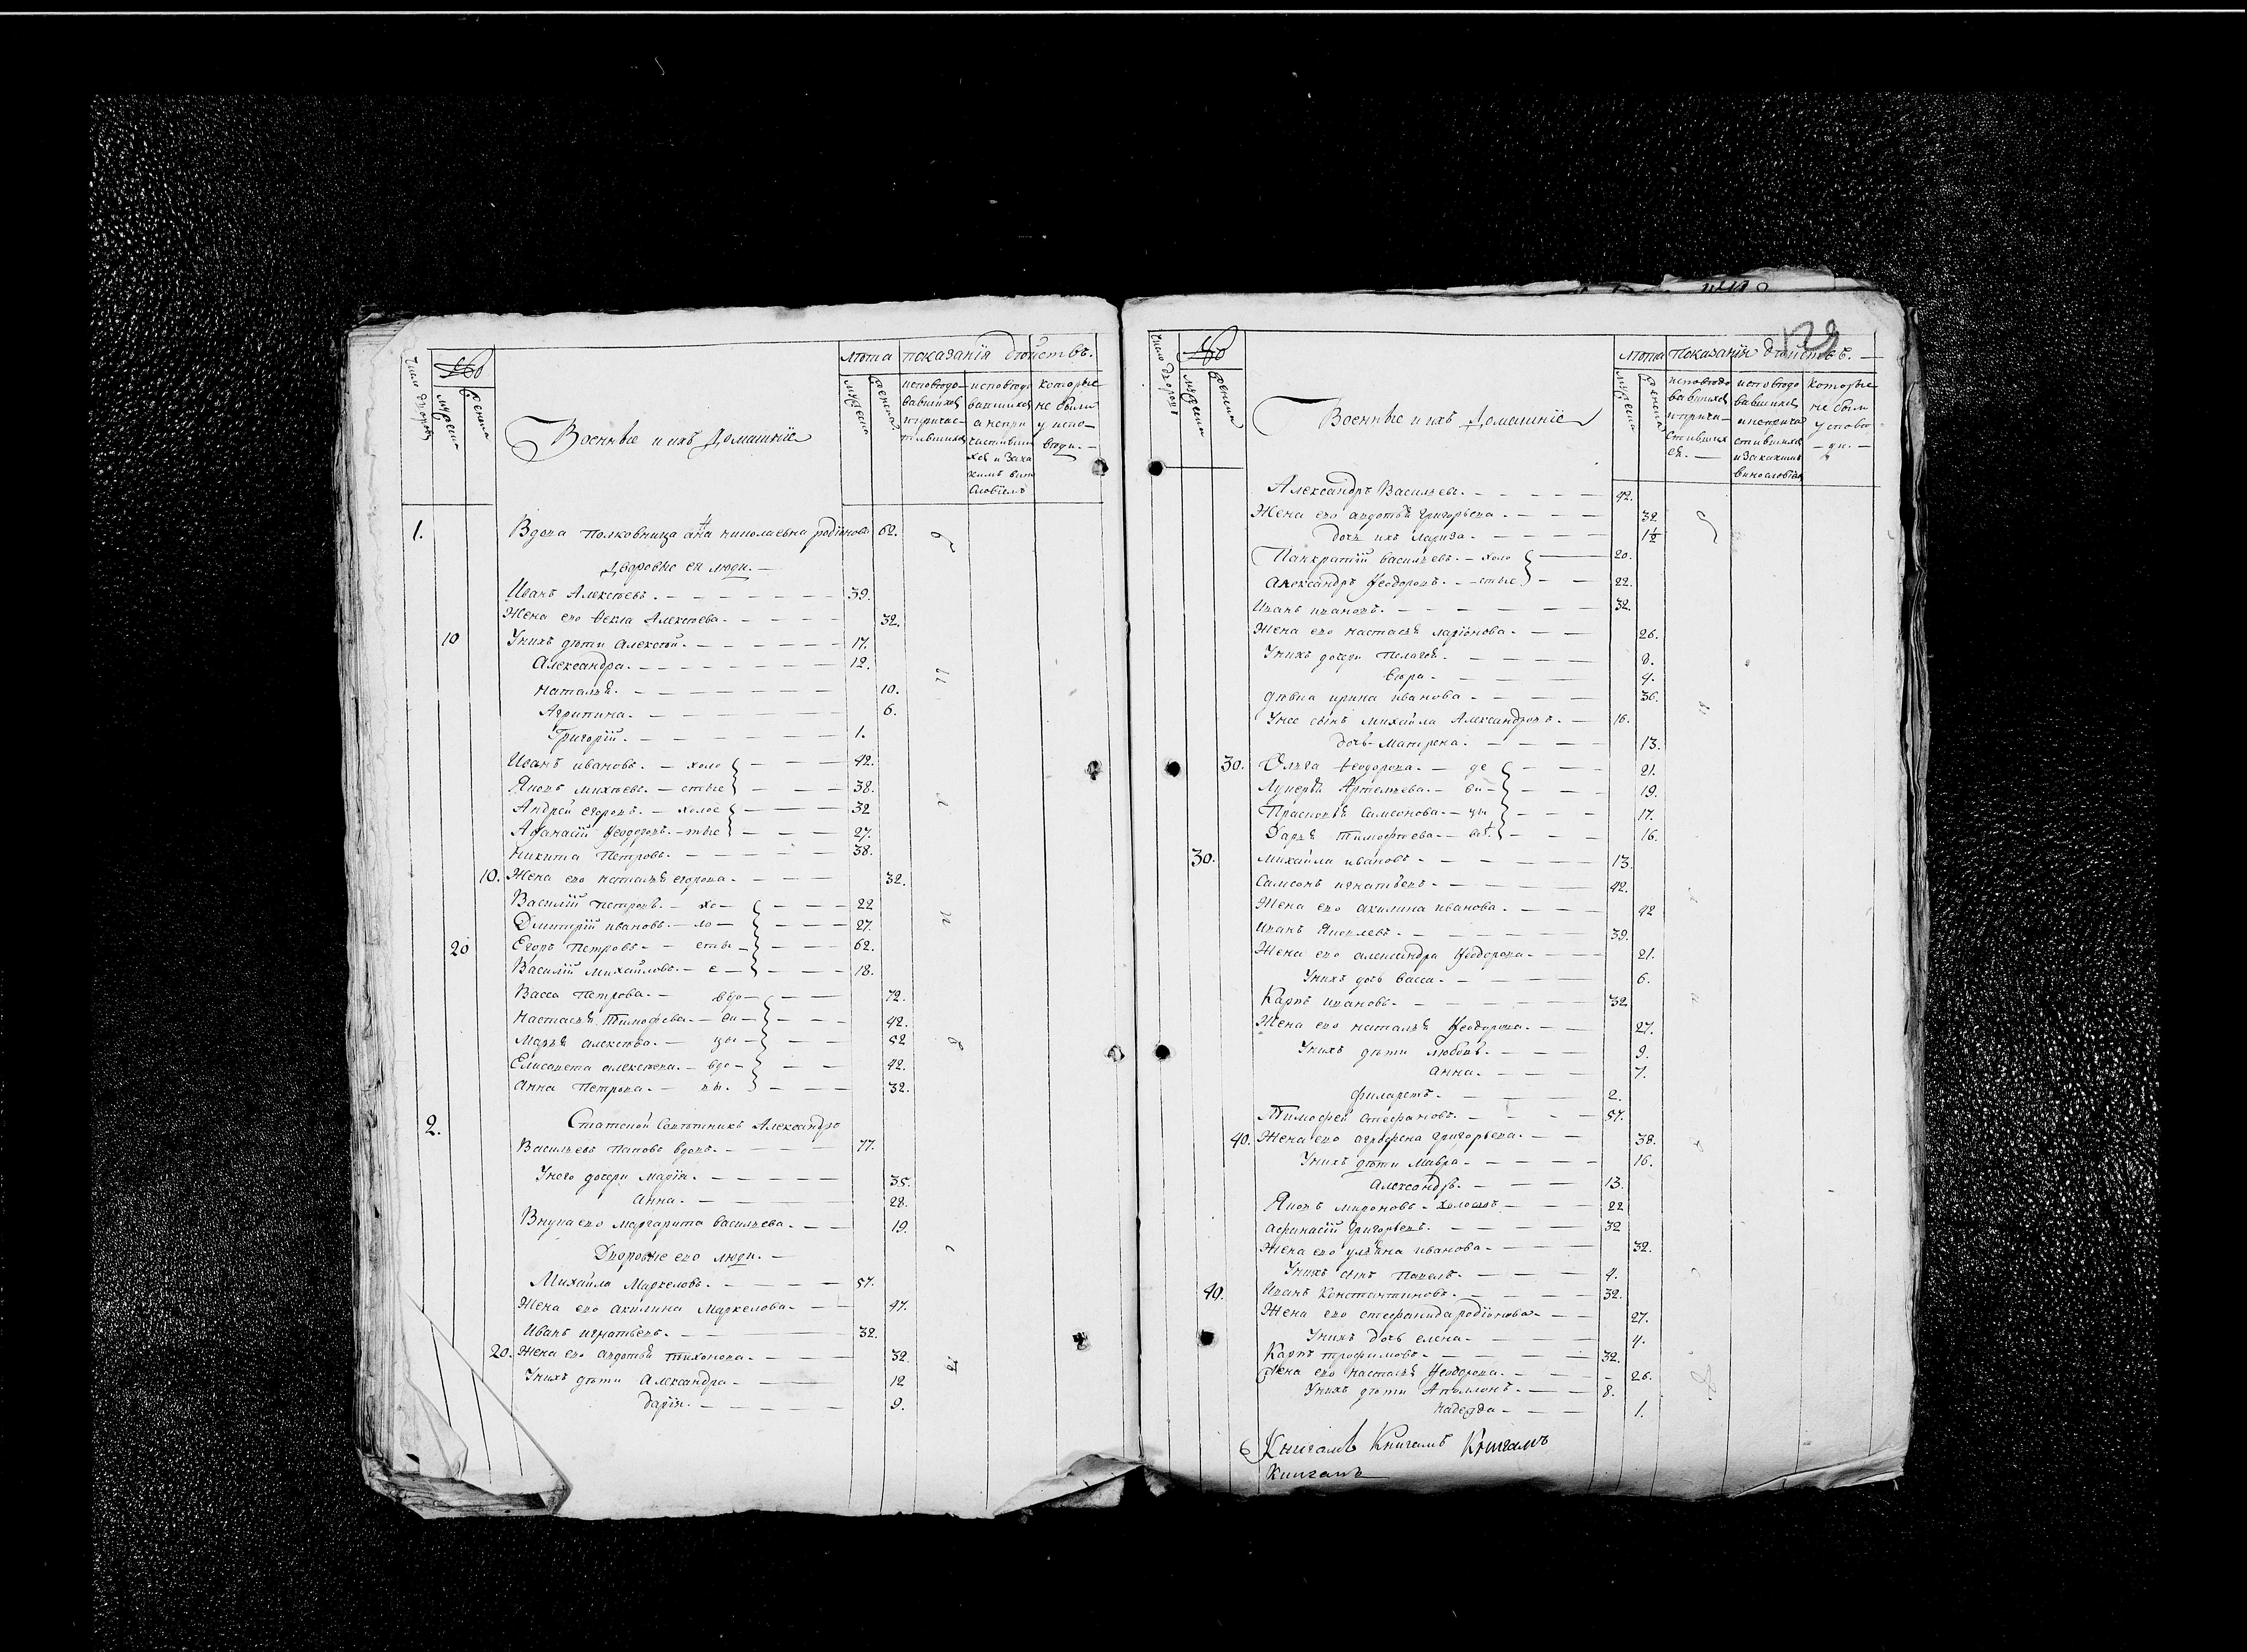 число дворовъ
мужеска
женска
Военные и ихъ Домашніе
лѣта
мужеска
женска
показанія дѣйствъ.
исповѣдо-
вавшихся
и причас-
тившихся
исповѣдо
вавшихся
а непри
частивши
хся и зака
кимъ вин
словіемъ
которые
не были
у испо-
вѣди.
1. Вдова полковница анна николаевна родіонова 62.
Дворовые ея люди.
Иванъ Алексѣевъ. 39.
Жена его Ѳекла Алексѣева. 32.
10 Унихъ дѣти Алексѣй. 17.
Александра. 12.
Наталья. 10.
Агрипина. 6.
Григорій. 1.
Иванъ ивановъ. — холо 42.
Яковъ михѣевъ. — стые 38.
Андрей егоровъ. — холос 32
Афанасій Ѳеодоровъ. — тые 27.
Никита Петровъ. 38.
10. Жена его наталья егорова. 32.
Василій петровъ. — хо — 22
Дмитрій ивановъ. — ло — 27.
20 Егоръ Петровъ. — сты — 62.
Василій Михайловъ. — е — 18.
Васса Петрова. — вдо — 72.
Настасья Тимофева. — ви — 42.
Марья алексѣва. — цы — 52
Елисавета алексѣева. — вдо — 42.
Анна Петрова. — вы. 32.
2. Статской Совѣтникъ Александръ
Васильевъ Поповъ вдовъ. 77.
Унего дочери Марія. 35.
Анна. 28.
Внука его Маргарита васильева. 19.
Дворовые его люди.
Михайла Маркеловъ. 57.
Жена его акилина Маркелова. 47.
Иванъ игнатьевъ. 32.
20. Жена его авдотья Тихонова. 32
Унихъ дѣти Александра 12
Дарія. 9.
129
число дворовъ
мужеска
женска
Военные и ихъ Домашніе
лѣта
мужеска
женска
показанія дѣйствъ.
исповѣдо
вавшихся
и прича-
стивших
ся.
исповѣдо
вавшихся
и неприча
стившихся
и закакимъ
винословіем
которые
не были
у исповѣ
ди.
Александръ Васильевъ. 42.
Жена его авдотья Григорьева. 32
дочь ихъ Лариса. 1½
Панкратій васильевъ. — холо 20.
Александръ Ѳеодоровъ. — стые 22.
Иванъ ивановъ. 32.
Жена его настасья ларіонова. 26.
Унихъ дочери Пелагея. 8.
Вѣра 4.
дѣвка ирина иванова 36.
Унее сынъ Михайла Александровъ. 16.
дочь Матрена. 13.
30. Ольга Ѳеодорова. — де 21.
Лукерья Артемьева. — ви — 19.
Прасковья Самсонова — цы 17.
Дарья Тимофѣева — 16.
30. Михайла ивановъ 13
Самсонъ игнатьевъ. 42.
Жена его акилина иванова. 42
Иванъ Яковлевъ. 39.
Жена его александра Ѳеодорова. 21.
Унихъ дочь васса. 6.
Карпъ ивановъ. 32
Жена его наталья Ѳеодорова. 27.
Унихъ дѣти любовь. 9.
Анна. 7.
Филаретъ. 2.
Тимофей Стефановъ. 57.
40. Жена его агрофена Григорьева. 38.
Унихъ дѣти Мавра. 16.
Александръ. 13.
Яковъ мироновъ — холостъ 22
Афанасій Григорьевъ. 32
Жена его ульяна иванова. 32.
Унихъ сынъ Павелъ. 4.
40. Иванъ Константиновъ. 32.
Жена его стефанида родіонова 27.
Унихъ дочь елена 4.
Карпъ трофимовъ. 32.
Жена его настасья Ѳеодорова. 26.
Унихъ дѣти Аполлонъ. 8.
Надежда 1.